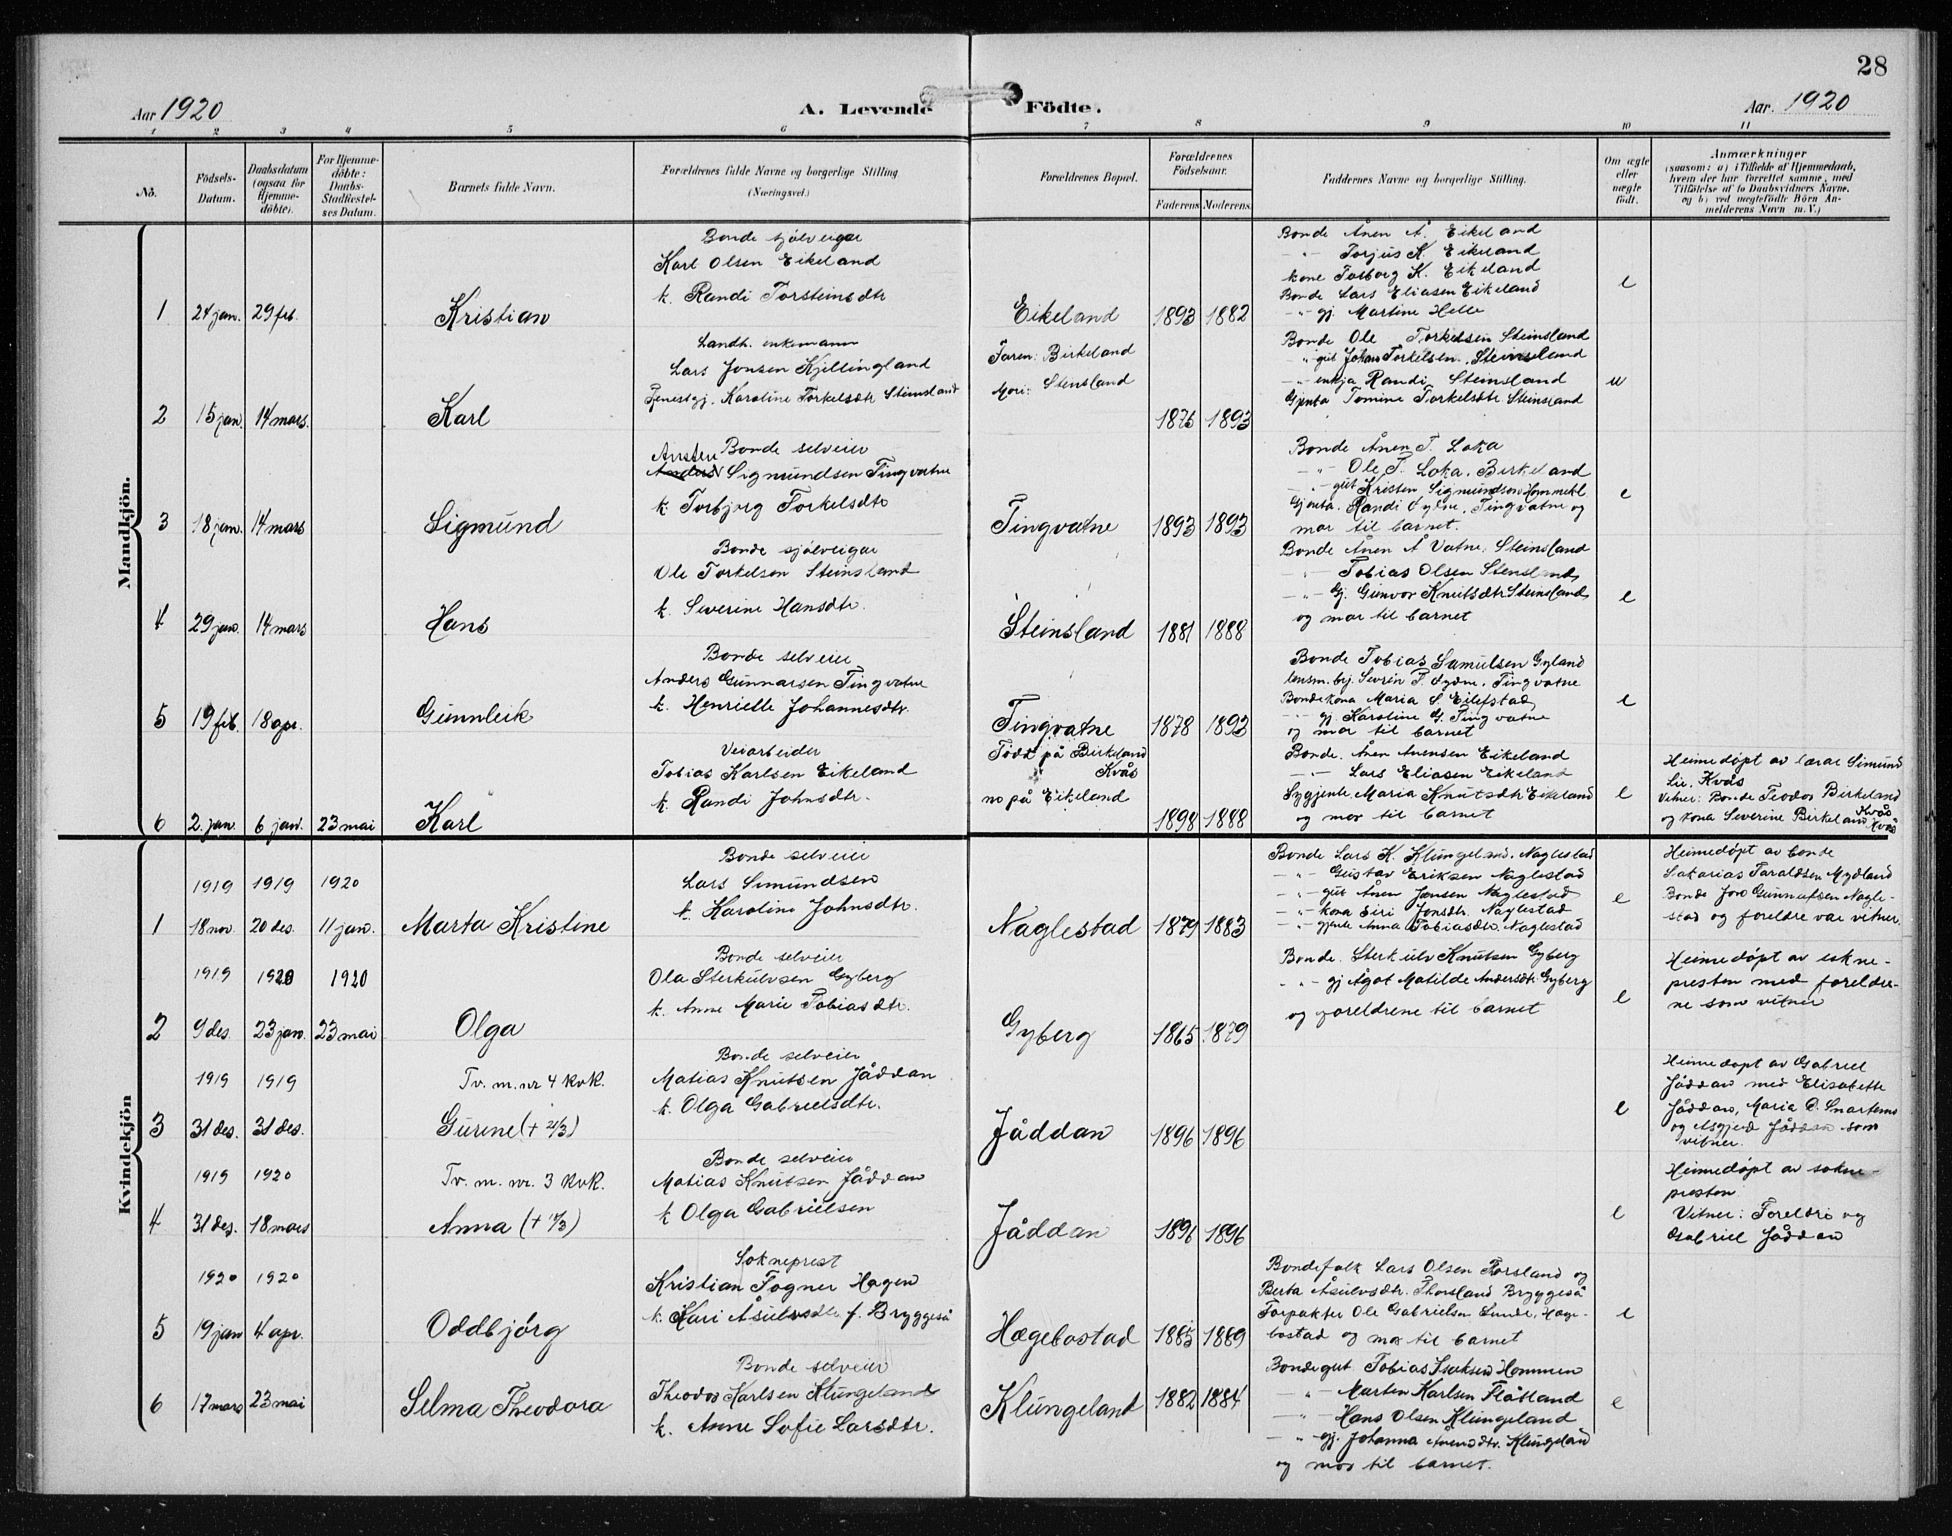 28
Aar 1920
A. Levende Födte.
Aar. 1920
1 2 3 4 5 6 7 8 9 10 11
No.
Födsels-Datum.
Daabsdatum (ogsaa for Hjemme-döbte).
For Hjemme-döbte: Daabs-Stadfæstel-ses Datum.
Barnets fulde Navn.
Forældrenes fulde Navne og borgerlige Stilling (Næringsvei.)
Forældrenes Bopæl.
Forældrenes Födselsaar.
Faderens Moderens
Faddernes Navne og borgerlige Stilling.
Om ægte eller uægte födt.
Anmærkninger
(saasom: a) i Tilfælde af Hjemmedaab, hvem der har forrettet samme, med Tilföielse af to Daabsvidners Navne. og b) ved uægtefödte Börn An-melderens Navn m. V.)
Mandkjön.
1 24 jan. 29 feb. Kristian
Bonde sjølveigar
Karl Olsen Eikeland
k. Randi Torsteinsdtr
Eikeland 1893 1882
Bonde Ånen Å. Eikeland
-"- Torjus K. Eikeland
kone Tarborg K. Eikeland
Bonde Lars Eliasen Eikeland
-"- gj. Martine Helle
e
2 15 jan. 14 mars. Karl
Landh. enkemann
Lars Jonsen Kjellingland
Tjenestgj. Karoline Torkelsdtr Steinsland
Faren: Birkeland
Mori: Stensland
1875 1893
Bonde Ole Torkelsen Steinsland
-"- gut Johan Torkelsen. Steinsland
-"- enkja Randi Steinsland
Gjenta Tomine Torkelsdtr Steinsland
u
3 18 jan. 14 mars Sigmund
Bonde selveier
Ansten Sigmundsen Tingvatne
k. Torbjorg Torkelsdtr
Tingvatne 1893 1893
Bonde Ånen T. Loka
-"- Ole T. Loka. Birkeland
-"- gut Kristen Sigmundson Hommekl
Gjenta. Randi Sydne. Tingvatne og
mor til barnet.
e
4 29 jan. 14 mars Hans
Bonde sjølveigar
Ole Torkelson Steinsland
k. Severine Hansdtr.
Steinsland 1881 1888
Bonde Ånen Å Vatne. Steinsland
-"- Tobias Olsen Stensland
-"- Gj. Gunvor Knutsdtr Steinsland
og mor til barnet
e
5 19 feb. 18 apr. Gunnleik
Bonde selveier
Anders Gunnarsen Tingvatne
k. Henrielle Johannesdtr.
Tingvatne 1878 1893
Bonde Tobias Samulsen Gyland
lensm. btj. Sevrin T. Sydne. Tingvatne
Bondekona Maria S. Eilefstad
-"- gj Karoline G. Tingvatne
og mor til barnet
e
6 2. jan. 6 jan. 23 mai Karl
Veiarbeider
Tobias Karlsen Eikeland
k. Randi Johnsdtr.
Född på Birkeland
Kvås
no på Eikeland
1898 1888
Bonde. Ånen Anensen Eikeland
-"- Lars Eliasen Eikeland
Sygjente Maria Knutsdtr Eikeland
og mor til barnet
e
Heimedøpt av lærar Simund
Lie. Kvås
Vitner: Bonde Teodor Birkeland Kvås
og kona Severine Birkeland Kvås
Kvindekjön
1919 1919 1920
1 18 nov. 20 des. 11 jan. Marta Kristine
Bonde selveier
Lars Simundsen
k. Karoline Johnsdtr.
Naglestad 1879 1883
Bonde Lars K. Klungeland. Naglestad
-"- Gustav Eriksen Naglestad
-"- gut Ånen Jensen Naglestad
-"- kona Siri Jonsdtr. Naglestad
-"- gjente Anna Tobiasdtr. Naglestad
e
Heimedøpt av bonde
Sakarias Taraldsen Mydland
Bonde Jon Gunnufsen Nagle-
stad og foreldre var vitner
1919 1920 1920
2 9 des. 23 jan. 23 mai Olga
Bonde selveier
Ola Sterkulvsen Gyberg
k. Anne Marie Tobiasdtr.
Gyberg 1865 1879
Bonde. Sterkulv Knutsen Gyberg
-"- gj Agot Matilde Andersdtr. Gyberg
og foreldrene til barnet
e
Heimedøpt av sokne-
presten med foreldre-
ne som vitner
1919 1919
3 31 des. 31 des. Tv. m. nr 4 kvk.
Gurine (+ 21/3)
Bonde selveier
Matias Knutsen Jåddan
k. Olga Gabrielsdtr.
Jåddan 1896 1896
e
Heimedøpt av Gabriel
Jåddan med Elisabette
Jåddan, Maria D. Snartemo
og Asgjerd Jåddan som
vitner.
1919 1920
4 31 des. 18 mars Tv. m. nr. 3 kvk.
Anna
Bonde selveier
Matias Knutsen Jåddan
k Olga Gabrielsen
Jåddan 1896 1896
e
Heimedøpt av sokne-
presten
Vitner: Foreldre og
Gabriel Jåddan
1920 1920
5 19 jan 4 apr. Oddbjörg
Sokneprest
Kristian Fogner Hagen
k. Kari Åsulvsdtr f. Bryggeså
Hægebostad 1885 1889
Bondefolk Lars Olsen Forsland og
Berta Åsulvsdtr. Thorsland Bryggeså
Forpakter Ole Gabrielsen Lunde, Hæge-
bostad og mor til barnet
e
6 17 mars 23 mai Selma Theodora
Bonde selveier
Theodor Karlsen Klungeland
k. Anne Sofie Larsdtr.
Klungeland 1882 1884
Bondegut Tobias Isaksen Hommen
-"- Marten Karlsen Flåtland
-"- Hans Olsen Klungeland
-"- gj. Johanna Anensdtr. Klungeland
og mor til barnet.
e